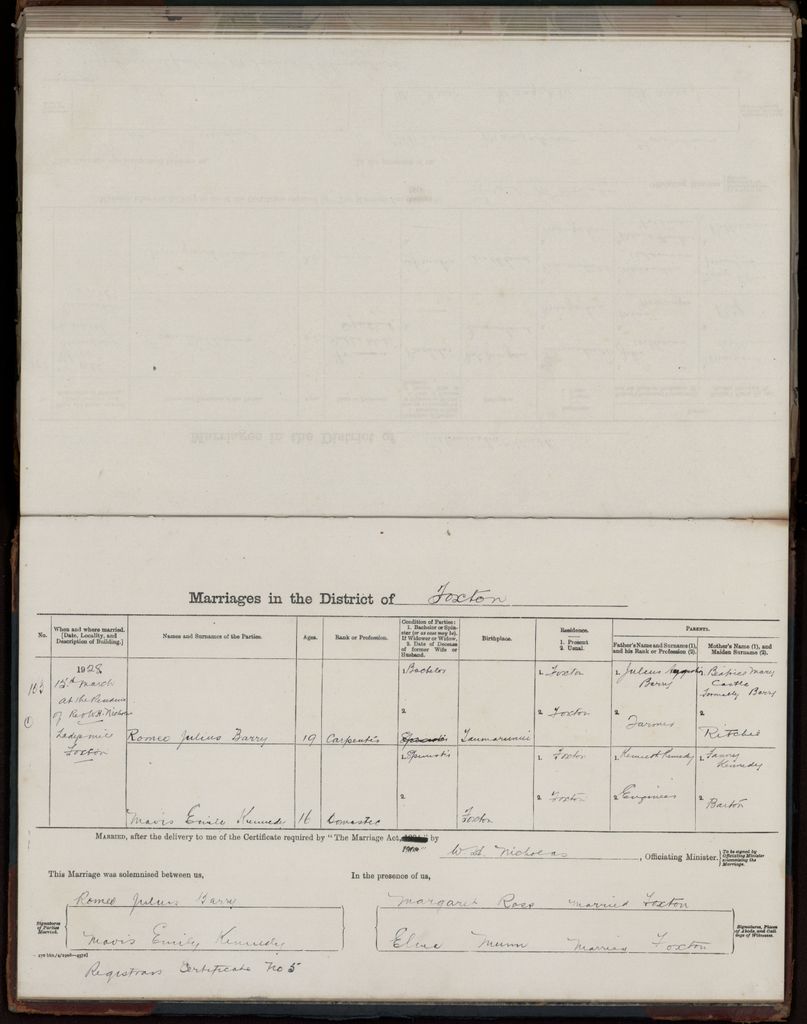 Marriages in the District of Foxton
No.
When and where married. [Date, Locality, and Description of Building.]
Names and Surnames of the Parties.
Ages.
Rank or Profession.
Condition of Parties: 1. Bachelor or Spinster (or as case may be). If Widower or Widow, 2. Date of Decease of former Wife or Husband.
Birthplace.
Residence. 1. Present 2. Usual.
PARENTS.
Father's Name and Surname (1), and his Rank or Profession (2).
Mother's Name (1), and Maiden Surname (2).
1928
13th March
at the Residence
of Rev W.H. Nicholas
Ladysmith
Foxton
Romeo Julius Barry
19
Carpenter
1. Bachelor
2.
Taumarunui
1. Foxton
2. Foxton
1. Julius
Barry
2. Farmer
1. Beatrice Mary
Castle
formerly Barry
2
Ritchie
Mavis Emily Kennedy
16
Domestic
1. Spinster
2.
Foxton
1. Foxton
2. Foxton
1. Kenneth Kennedy
2. Engineer
1. Fanny
Kennedy
2. Barton
MARRIED, after the delivery to me of the Certificate required by "The Marriage Act, 1908" by
W. H. Nicholas, Officiating Minister.
[To be signed by Officiating Minister solemnizing the Marriage.
This Marriage was solemnised between us,
In the presence of us,
Signatures of Parties Married.
Romeo Julius Barry
Mavis Emily Kennedy
Margaret Ross Married Foxton
Munn Married Foxton
Signatures, Places of Abode, and Callings of Witnesses.
Registrars Certificate No 5